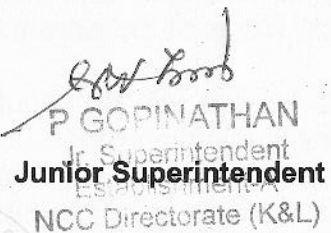 P GOPINATHAN
Jr. Superintendent
Junior Superintendent
Establishment-A
NCC Directorate (K&L)